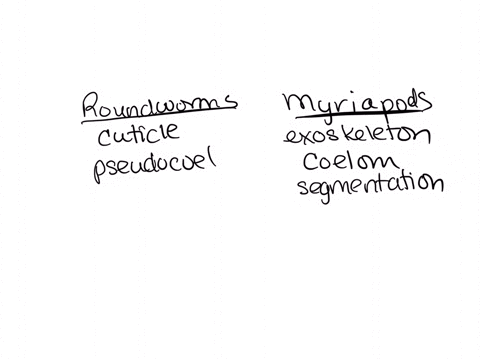 Roundworms
cuticle
pseudocoel
Myriapods
exoskeleton
coelom
segmentation